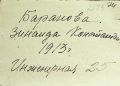 Баранова
Зинаида Константи
1913 г
Инженерная 25